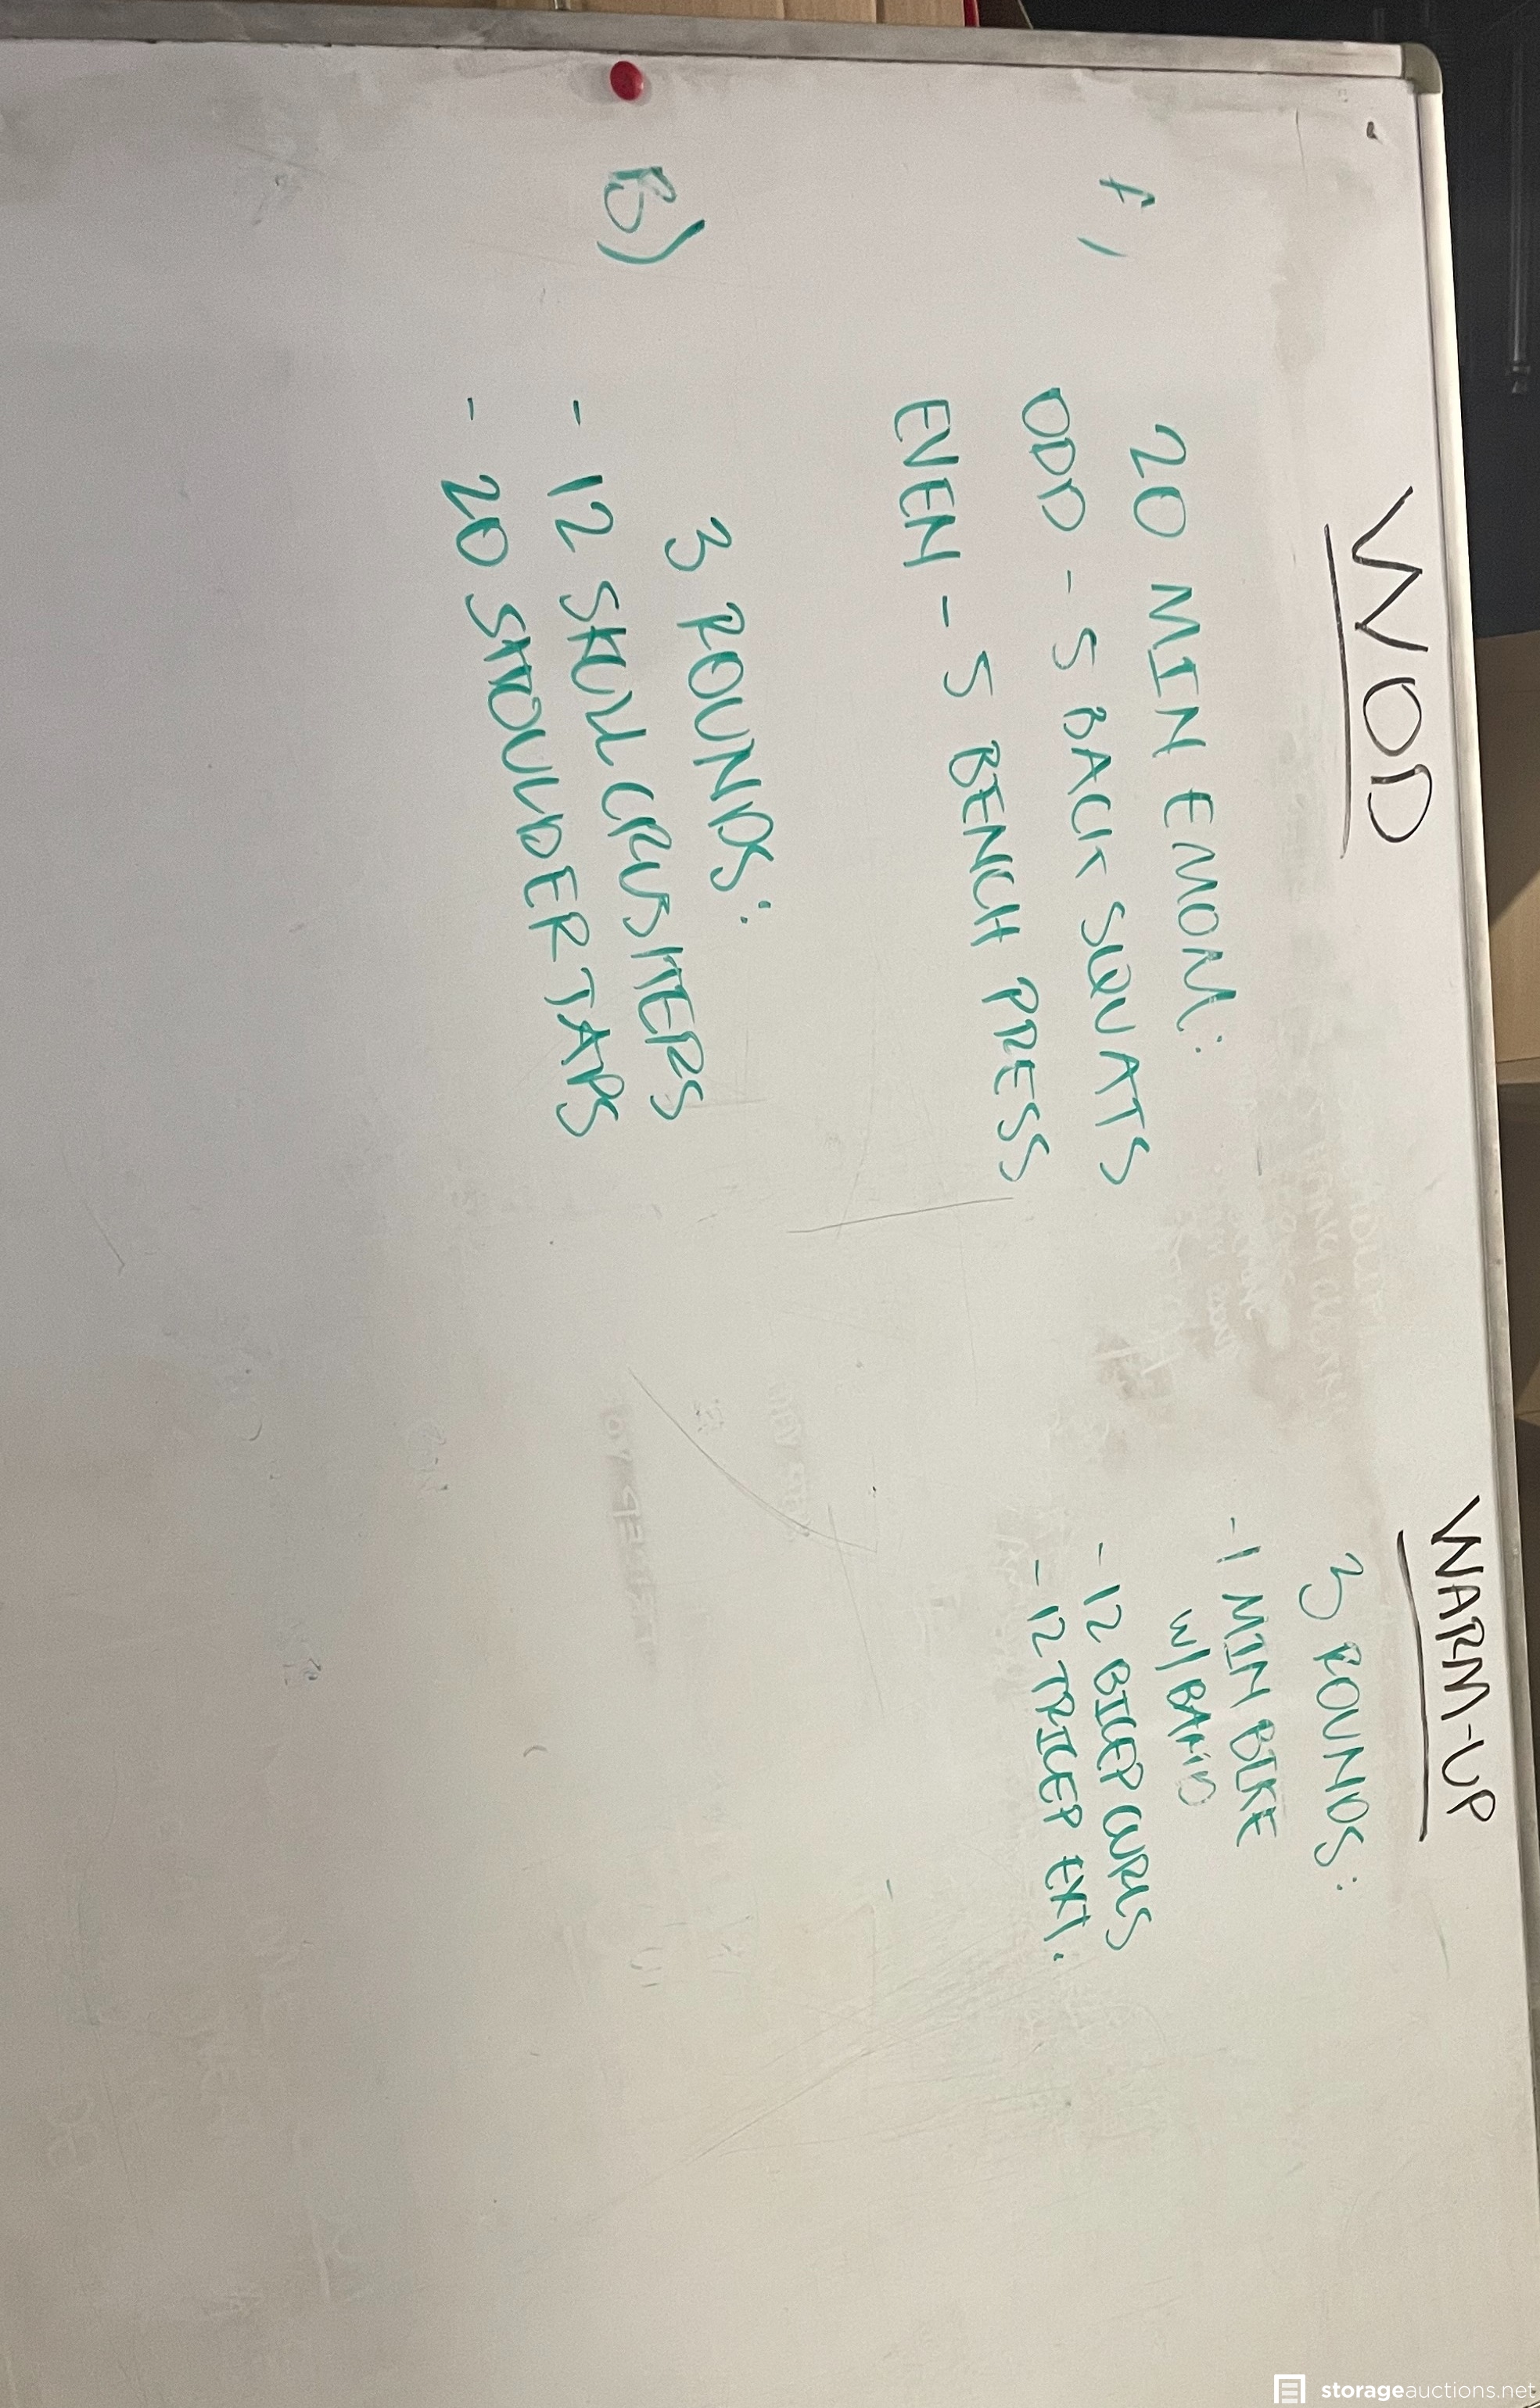 WOD
A)
20 MIN EMOM:
ODD - 5 BACK SQUATS
EVEN - 5 BENCH PRESS
B)
3 ROUNDS:
- 12 SKULL CRUSHERS
- 20 SHOULDER TAPS
WARM-UP
3 ROUNDS:
- 1 MIN BIKE
W/ BAND
- 12 BICEP CURLS
- 12 TRICEP EXT.
storageauctions.net